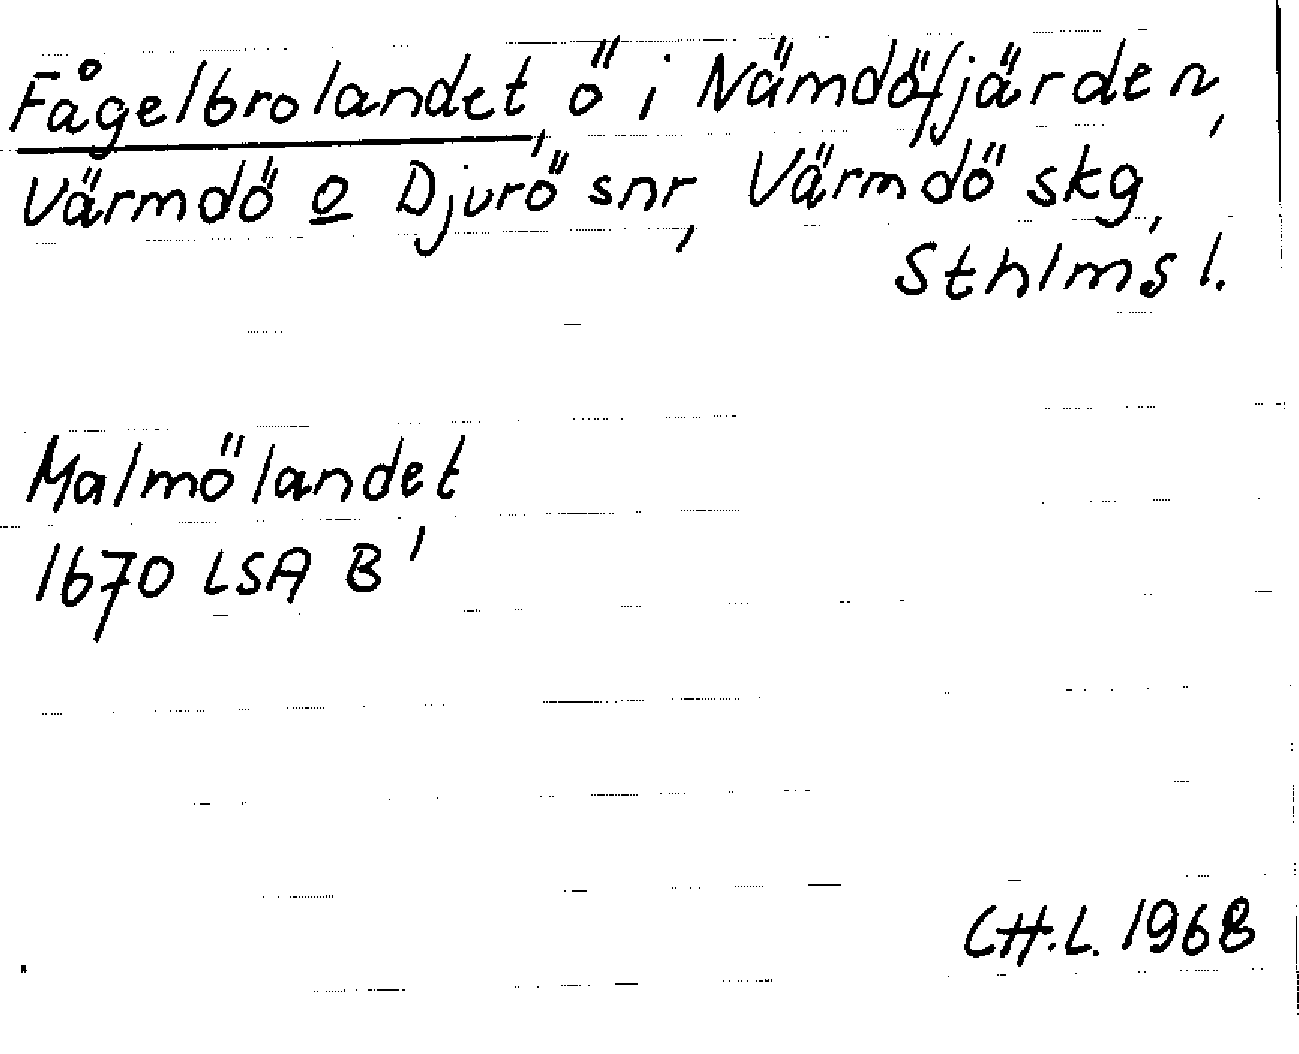 Fågelbrolandet, ö i Nämdöfjärden,
Värmdö o Djurö snr, Värmdö skg,
Sthlms l.
Malmölandet
1670 LSA B'
CH.L. 1968